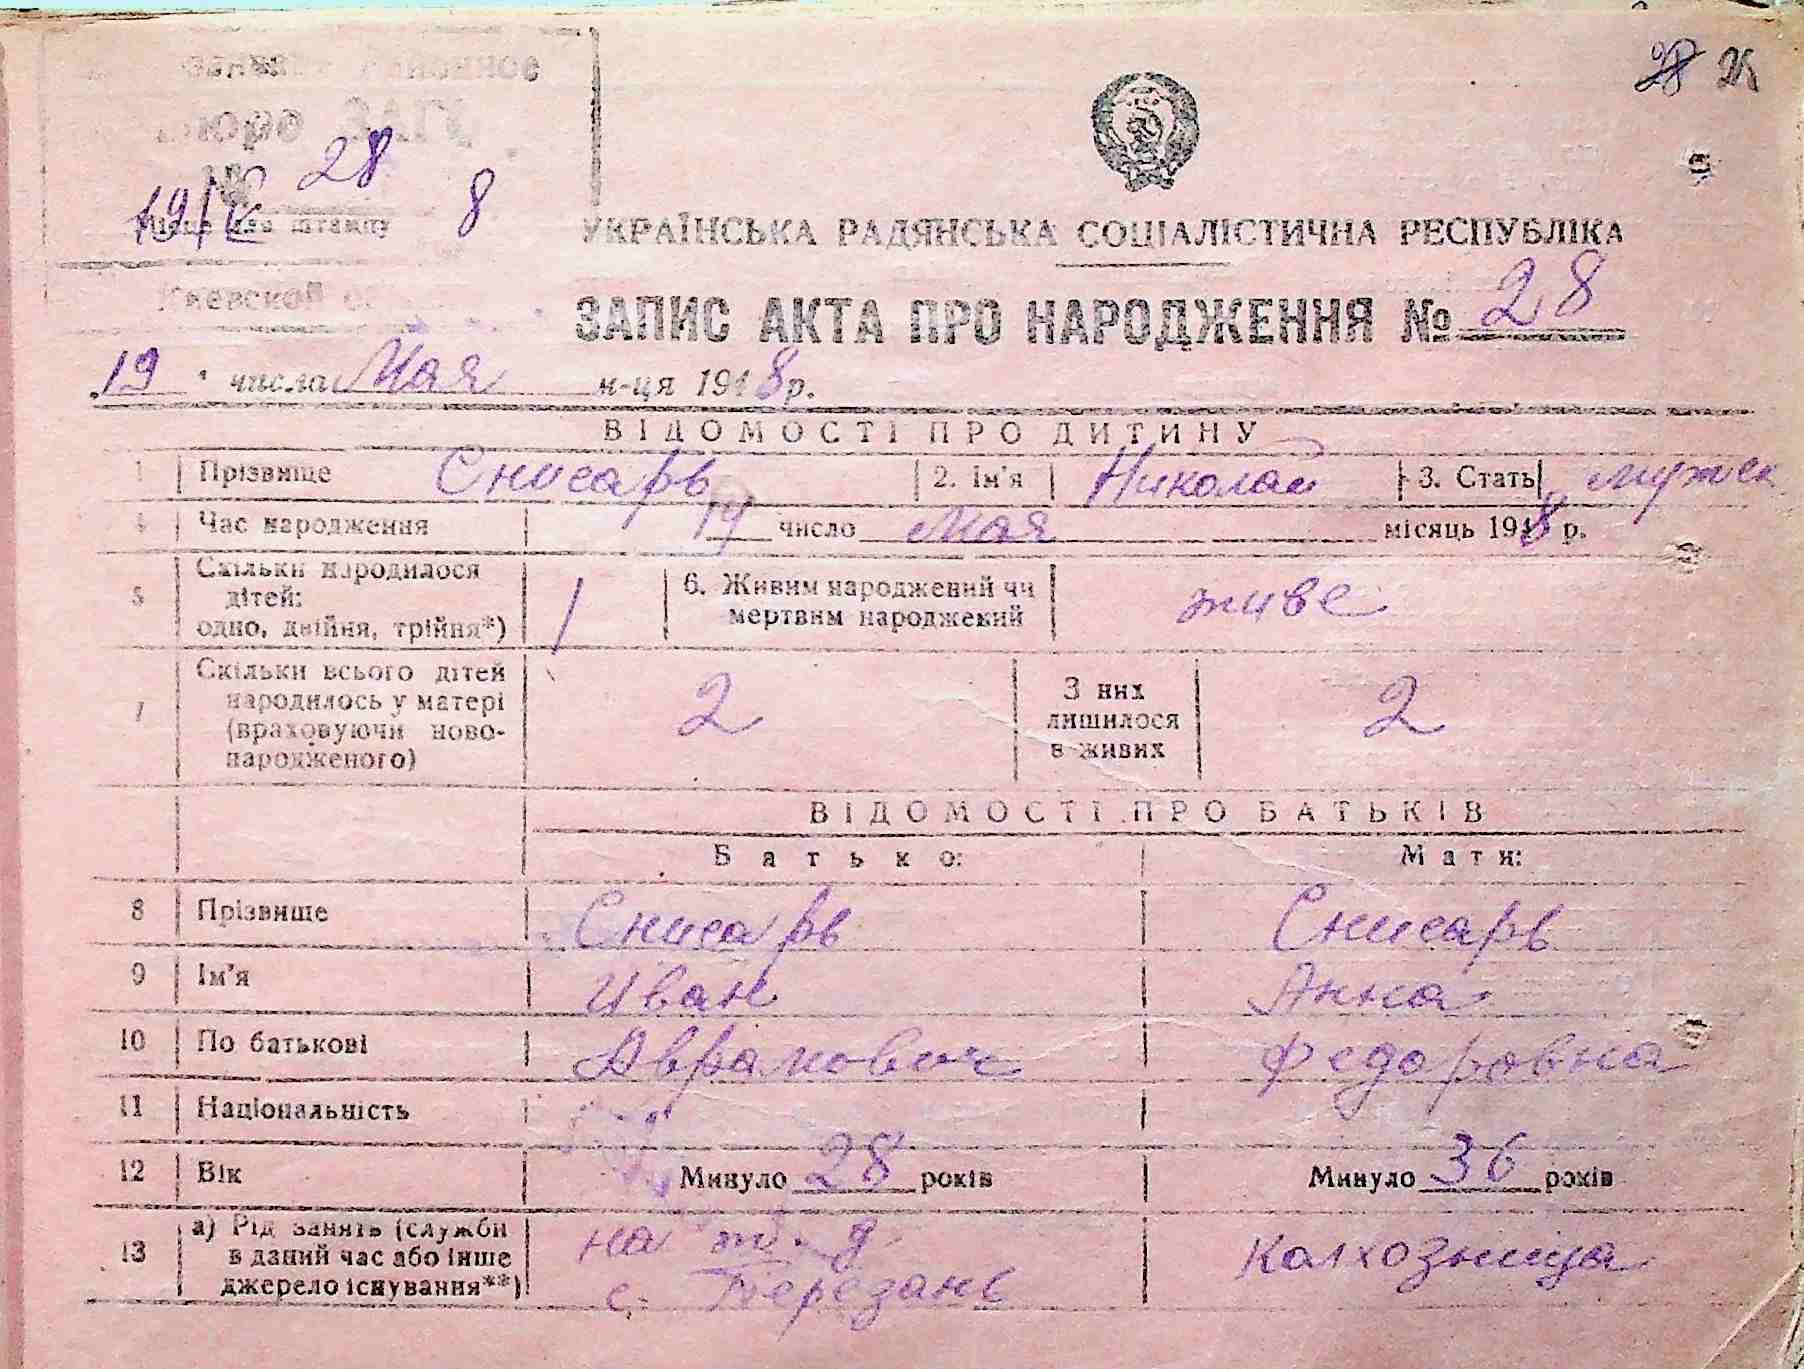 28 25
районное
бюро ЗАГС
№ 28
Місце для штампу 8
Киевской
УКРАЇНСЬКА РАДЯНСЬКА СОЦІАЛІСТИЧНА РЕСПУБЛІКА
ЗАПИС АКТА ПРО НАРОДЖЕННЯ № 28
19 числа Мая м-ця 1948 р.
ВІДОМОСТІ ПРО ДИТИНУ
1 Прізвище Снисарь 2. Ім'я Николай 3. Стать мужск
4 Час народження 19 число Мая місяць 1948 р.
5 Скільки народилося дітей: одно, двійня, трійня*) 1 6. Живим народжений чи мертвим народжений живе
7 Скільки всього дітей народилось у матері (враховуючи новонародженого) 2 З них лишилося в живих 2
ВІДОМОСТІ ПРО БАТЬКІВ
Батько: Мати:
8 Прізвище Снисарь Снисарь
9 Ім'я Иван Анна
10 По батькові Аврамович Федоровна
11 Національність
12 Вік Минуло 28 років Минуло 36 років
13 а) Рід занять (служби в даний час або інше джерело існування**) на ж. д. с. Березань колхозница